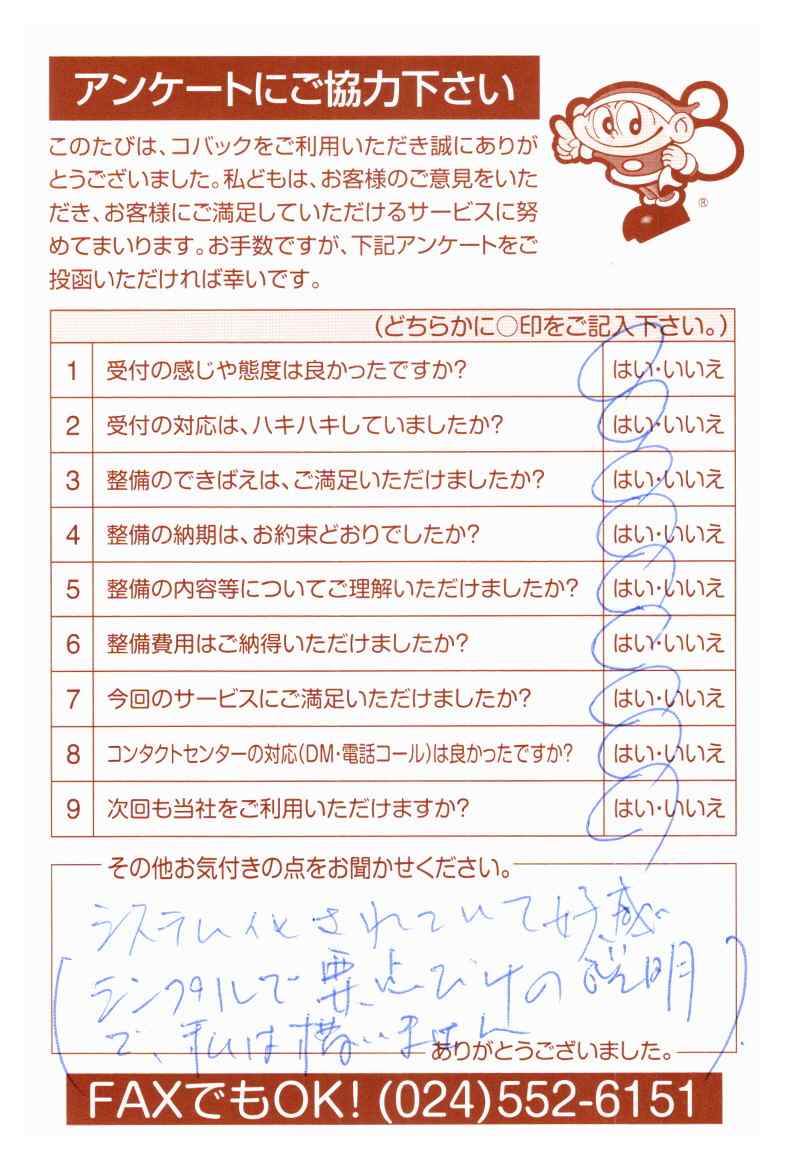 アンケートにご協力下さい
このたびは、コバックをご利用いただき誠にありが
とうございました。私どもは、お客様のご意見をいた
だき、お客様にご満足していただけるサービスに努
めてまいります。お手数ですが、下記アンケートをご
投函いただければ幸いです。
®
(どちらかに○印をご記入下さい。)
1 受付の感じや態度は良かったですか? はい・いいえ
2 受付の対応は、ハキハキしていましたか? はい・いいえ
3 整備のできばえは、ご満足いただけましたか? はい・いいえ
4 整備の納期は、お約束どおりでしたか? はい・いいえ
5 整備の内容等についてご理解いただけましたか? はい・いいえ
6 整備費用はご納得いただけましたか? はい・いいえ
7 今回のサービスにご満足いただけましたか? はい・いいえ
8 コンタクトセンターの対応(DM・電話コール)は良かったですか? はい・いいえ
9 次回も当社をご利用いただけますか? はい・いいえ
その他お気付きの点をお聞かせください。
システム化されていて好感
(シンプルで要点だけの説明
で、私は構いません)
ありがとうございました。
FAXでもOK! (024)552-6151